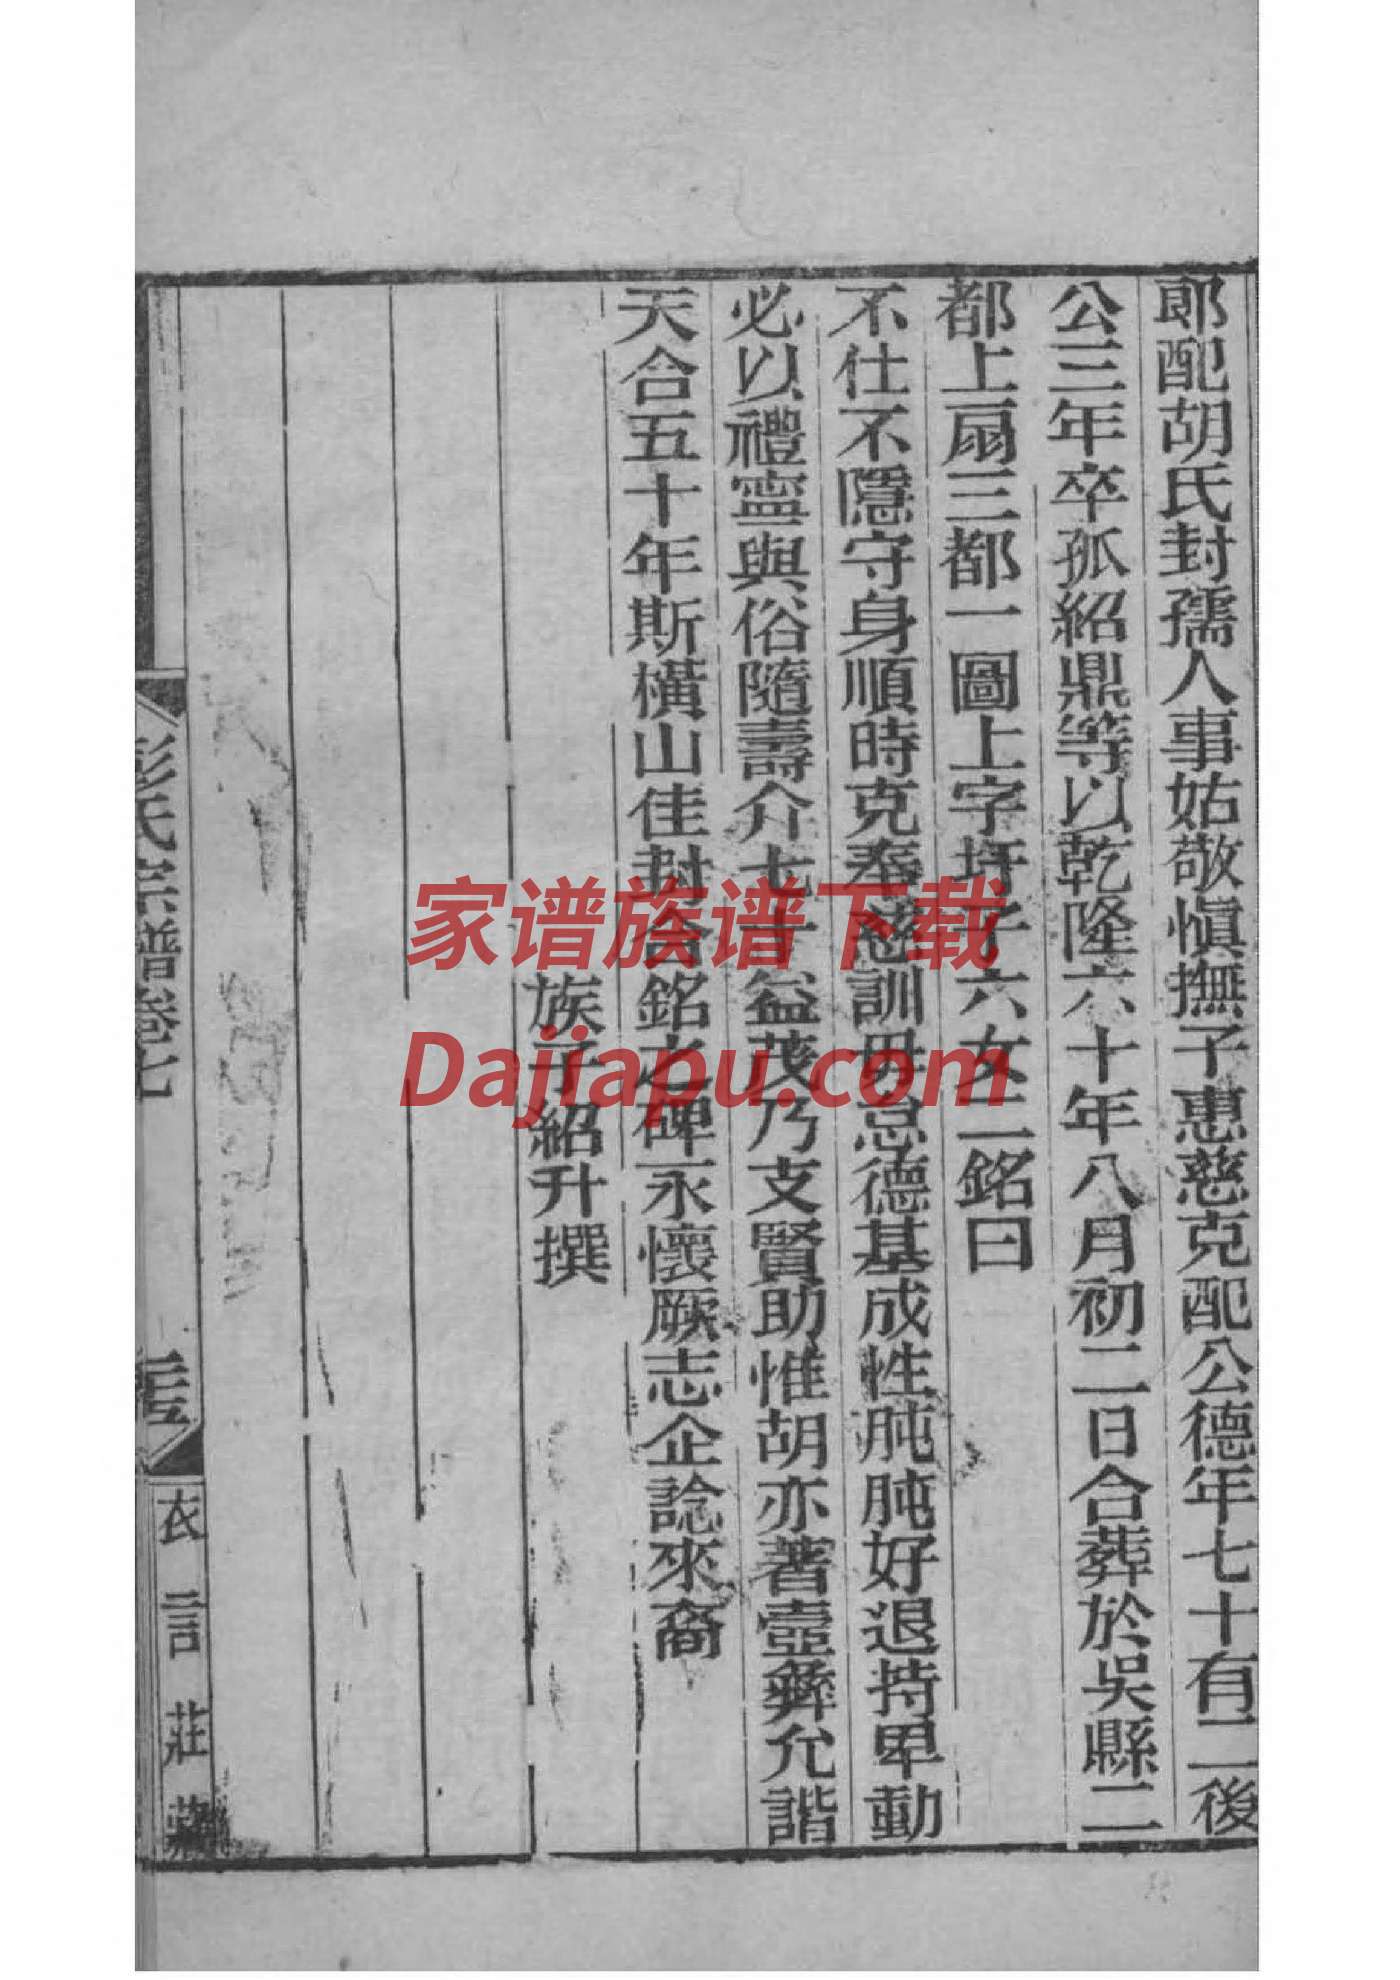 郎配胡氏封孺人事姑敬慎撫子惠慈克配公德年七十有二後
公三年卒孤紹鼎等以乾隆六十年八月初二日合葬於吳縣二
都上扇三都一圖上字圩子六女二銘曰
不仕不隱守身順時克奉慈訓毋忘德基成性肫肫好退持卑動
必以禮寧與俗隨壽介七十益茂乃支賢助惟胡亦著壼彝允諧
天合五十年斯橫山佳封合銘之碑永懷厥志企諗來裔
族子紹升撰
彭氏宗譜卷七
衣言莊藏
家谱族谱下载
Dajiapu.com